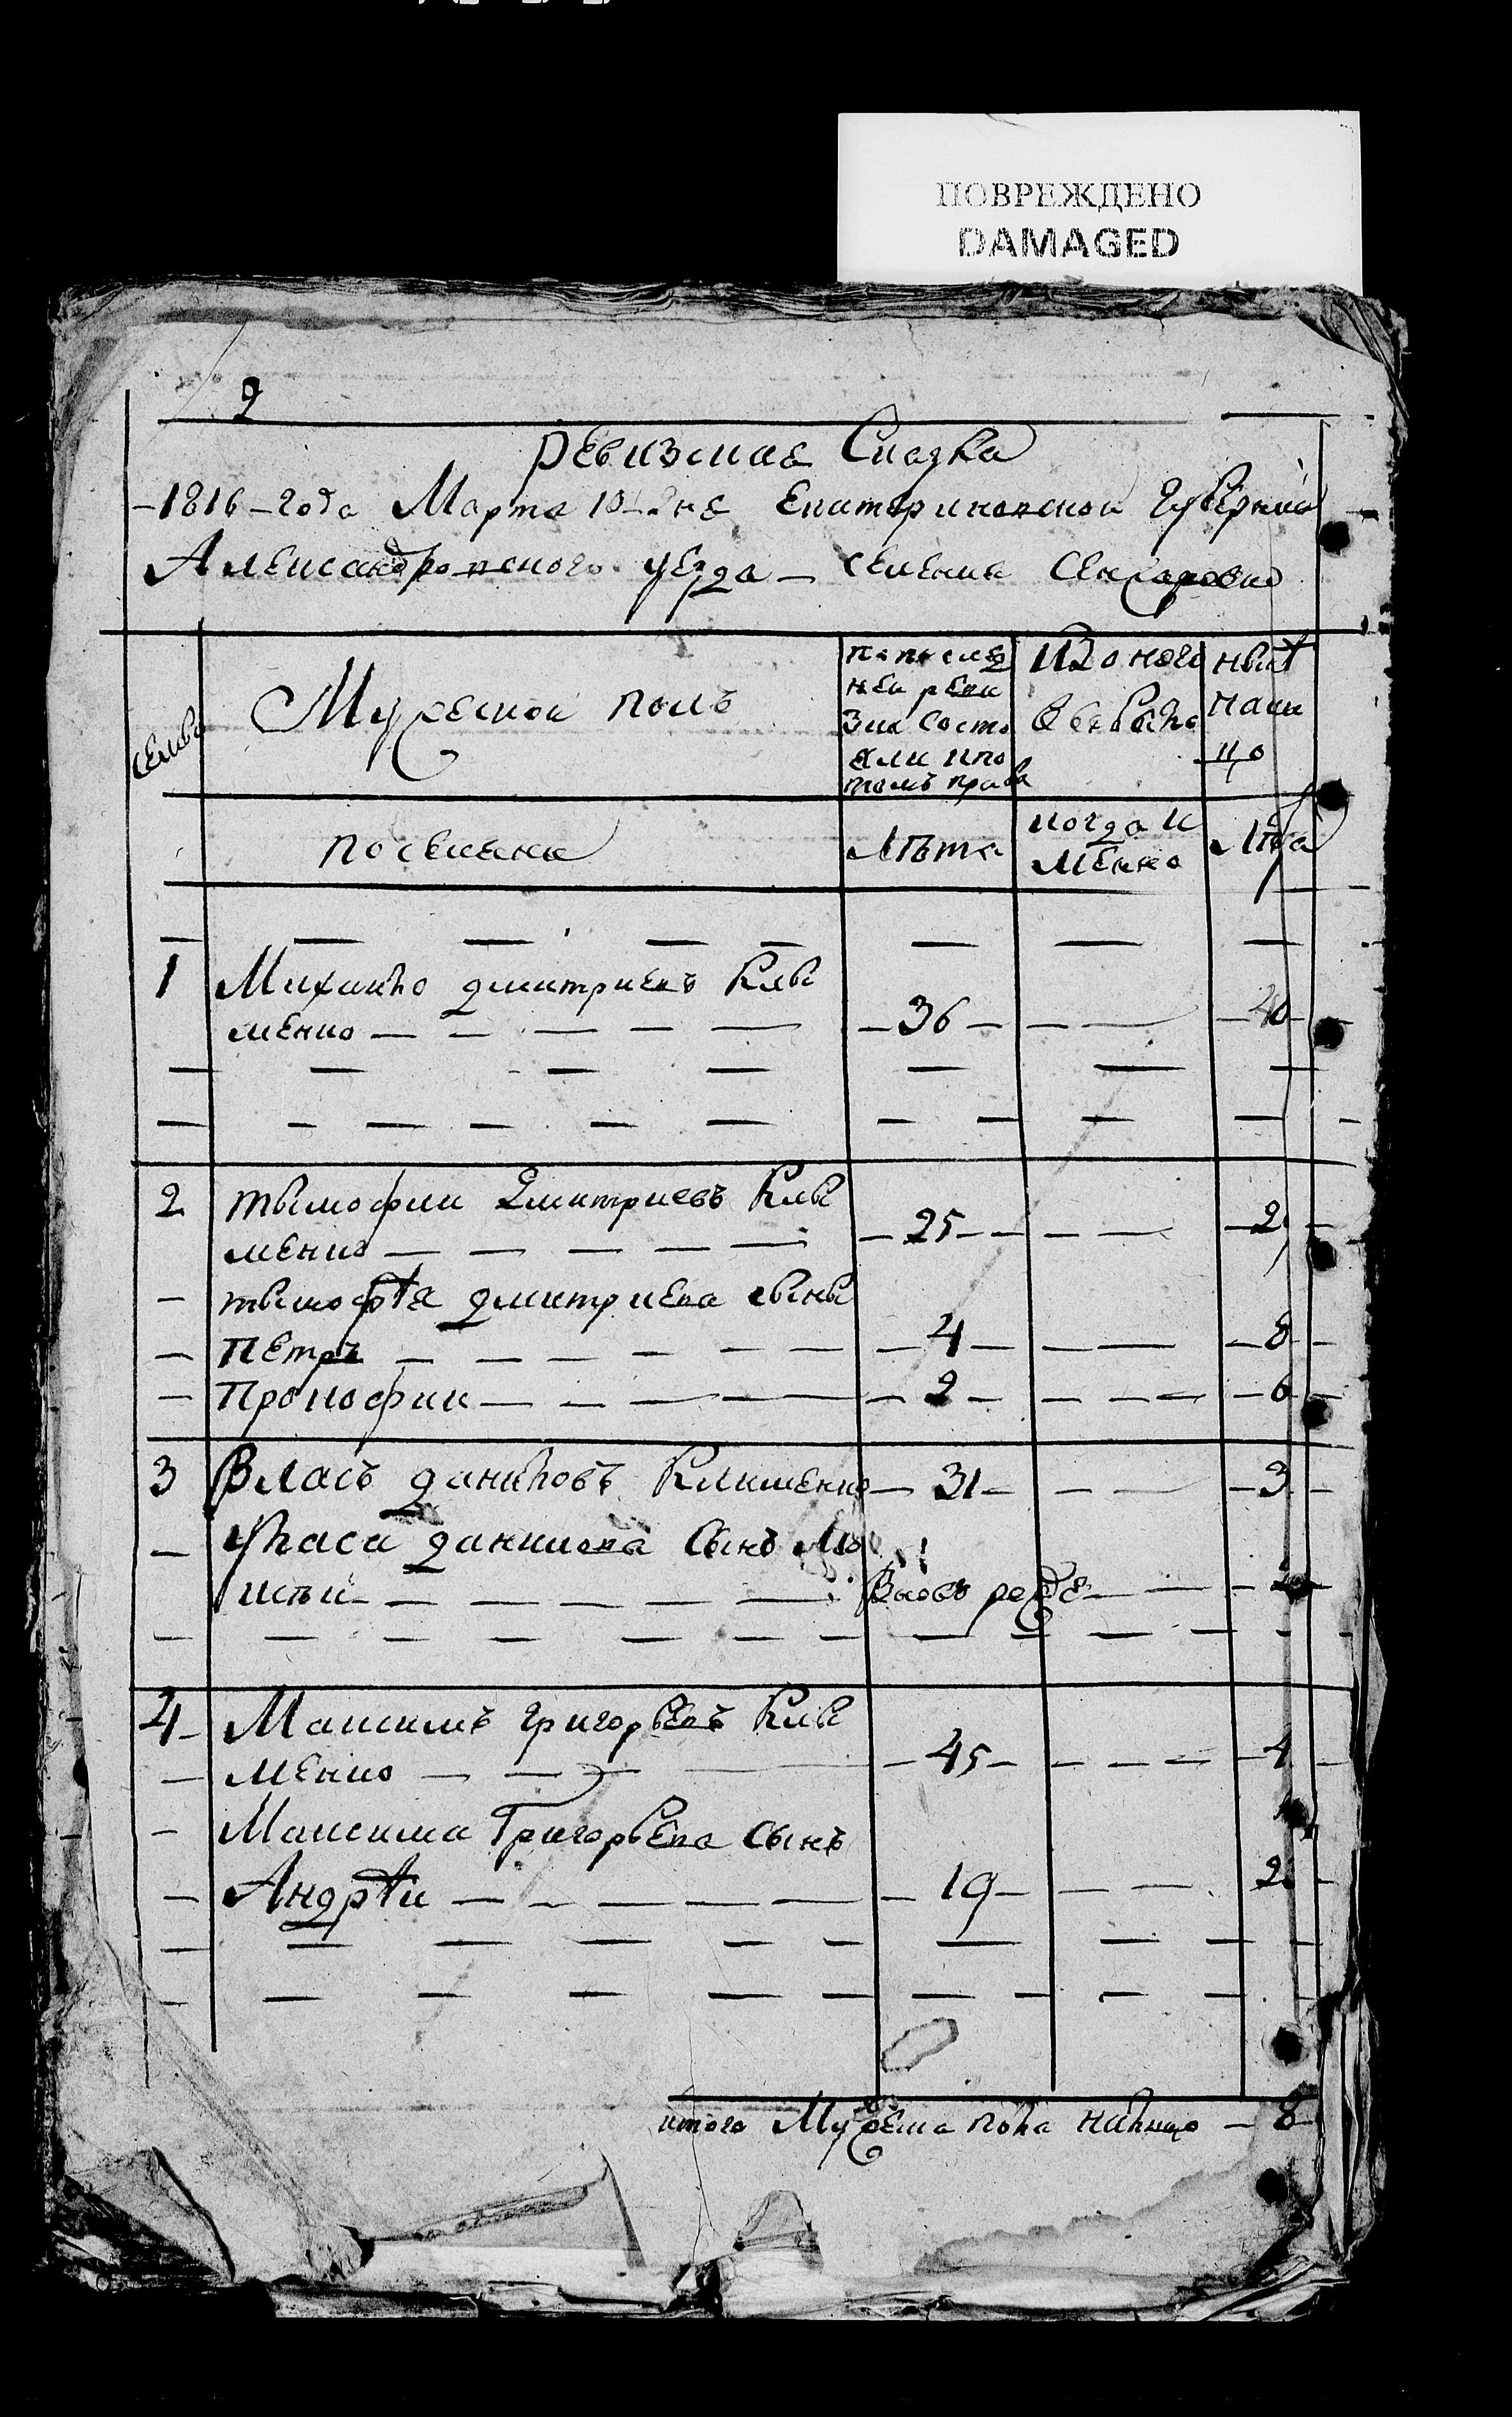 ПОВРЕЖДЕНО
DAMAGED
2
Ревизская Сказка
1816 года Марта 10 дня Екатериновской Губернии
Александровского уезда селения
семьи
Мужеской полъ
по послѣд
ней реви
зии состо
яли и по
томъ приб
Изъ оного
числа
выбыло
нынѣ
нали
цо
поселяне
Лѣта
когда и
менно
Лѣта
1 Михайло Дмитриевъ Кли
менко 36 40
2 Тымофий Дмитриевъ Кли
менко 25 2
тымофѣя Дмитриева сыны
Петръ 4 8
Прокофий 2 6
3 Власъ Даниловъ Клименко 31 3
Власа Данилова Сынъ
Вновь рожд
4 Максимъ Григорьевъ Кли
менко 45 4
Максима Григорьева Сынъ
Андрѣй 19 2
итого Мужеска пола налицо 8